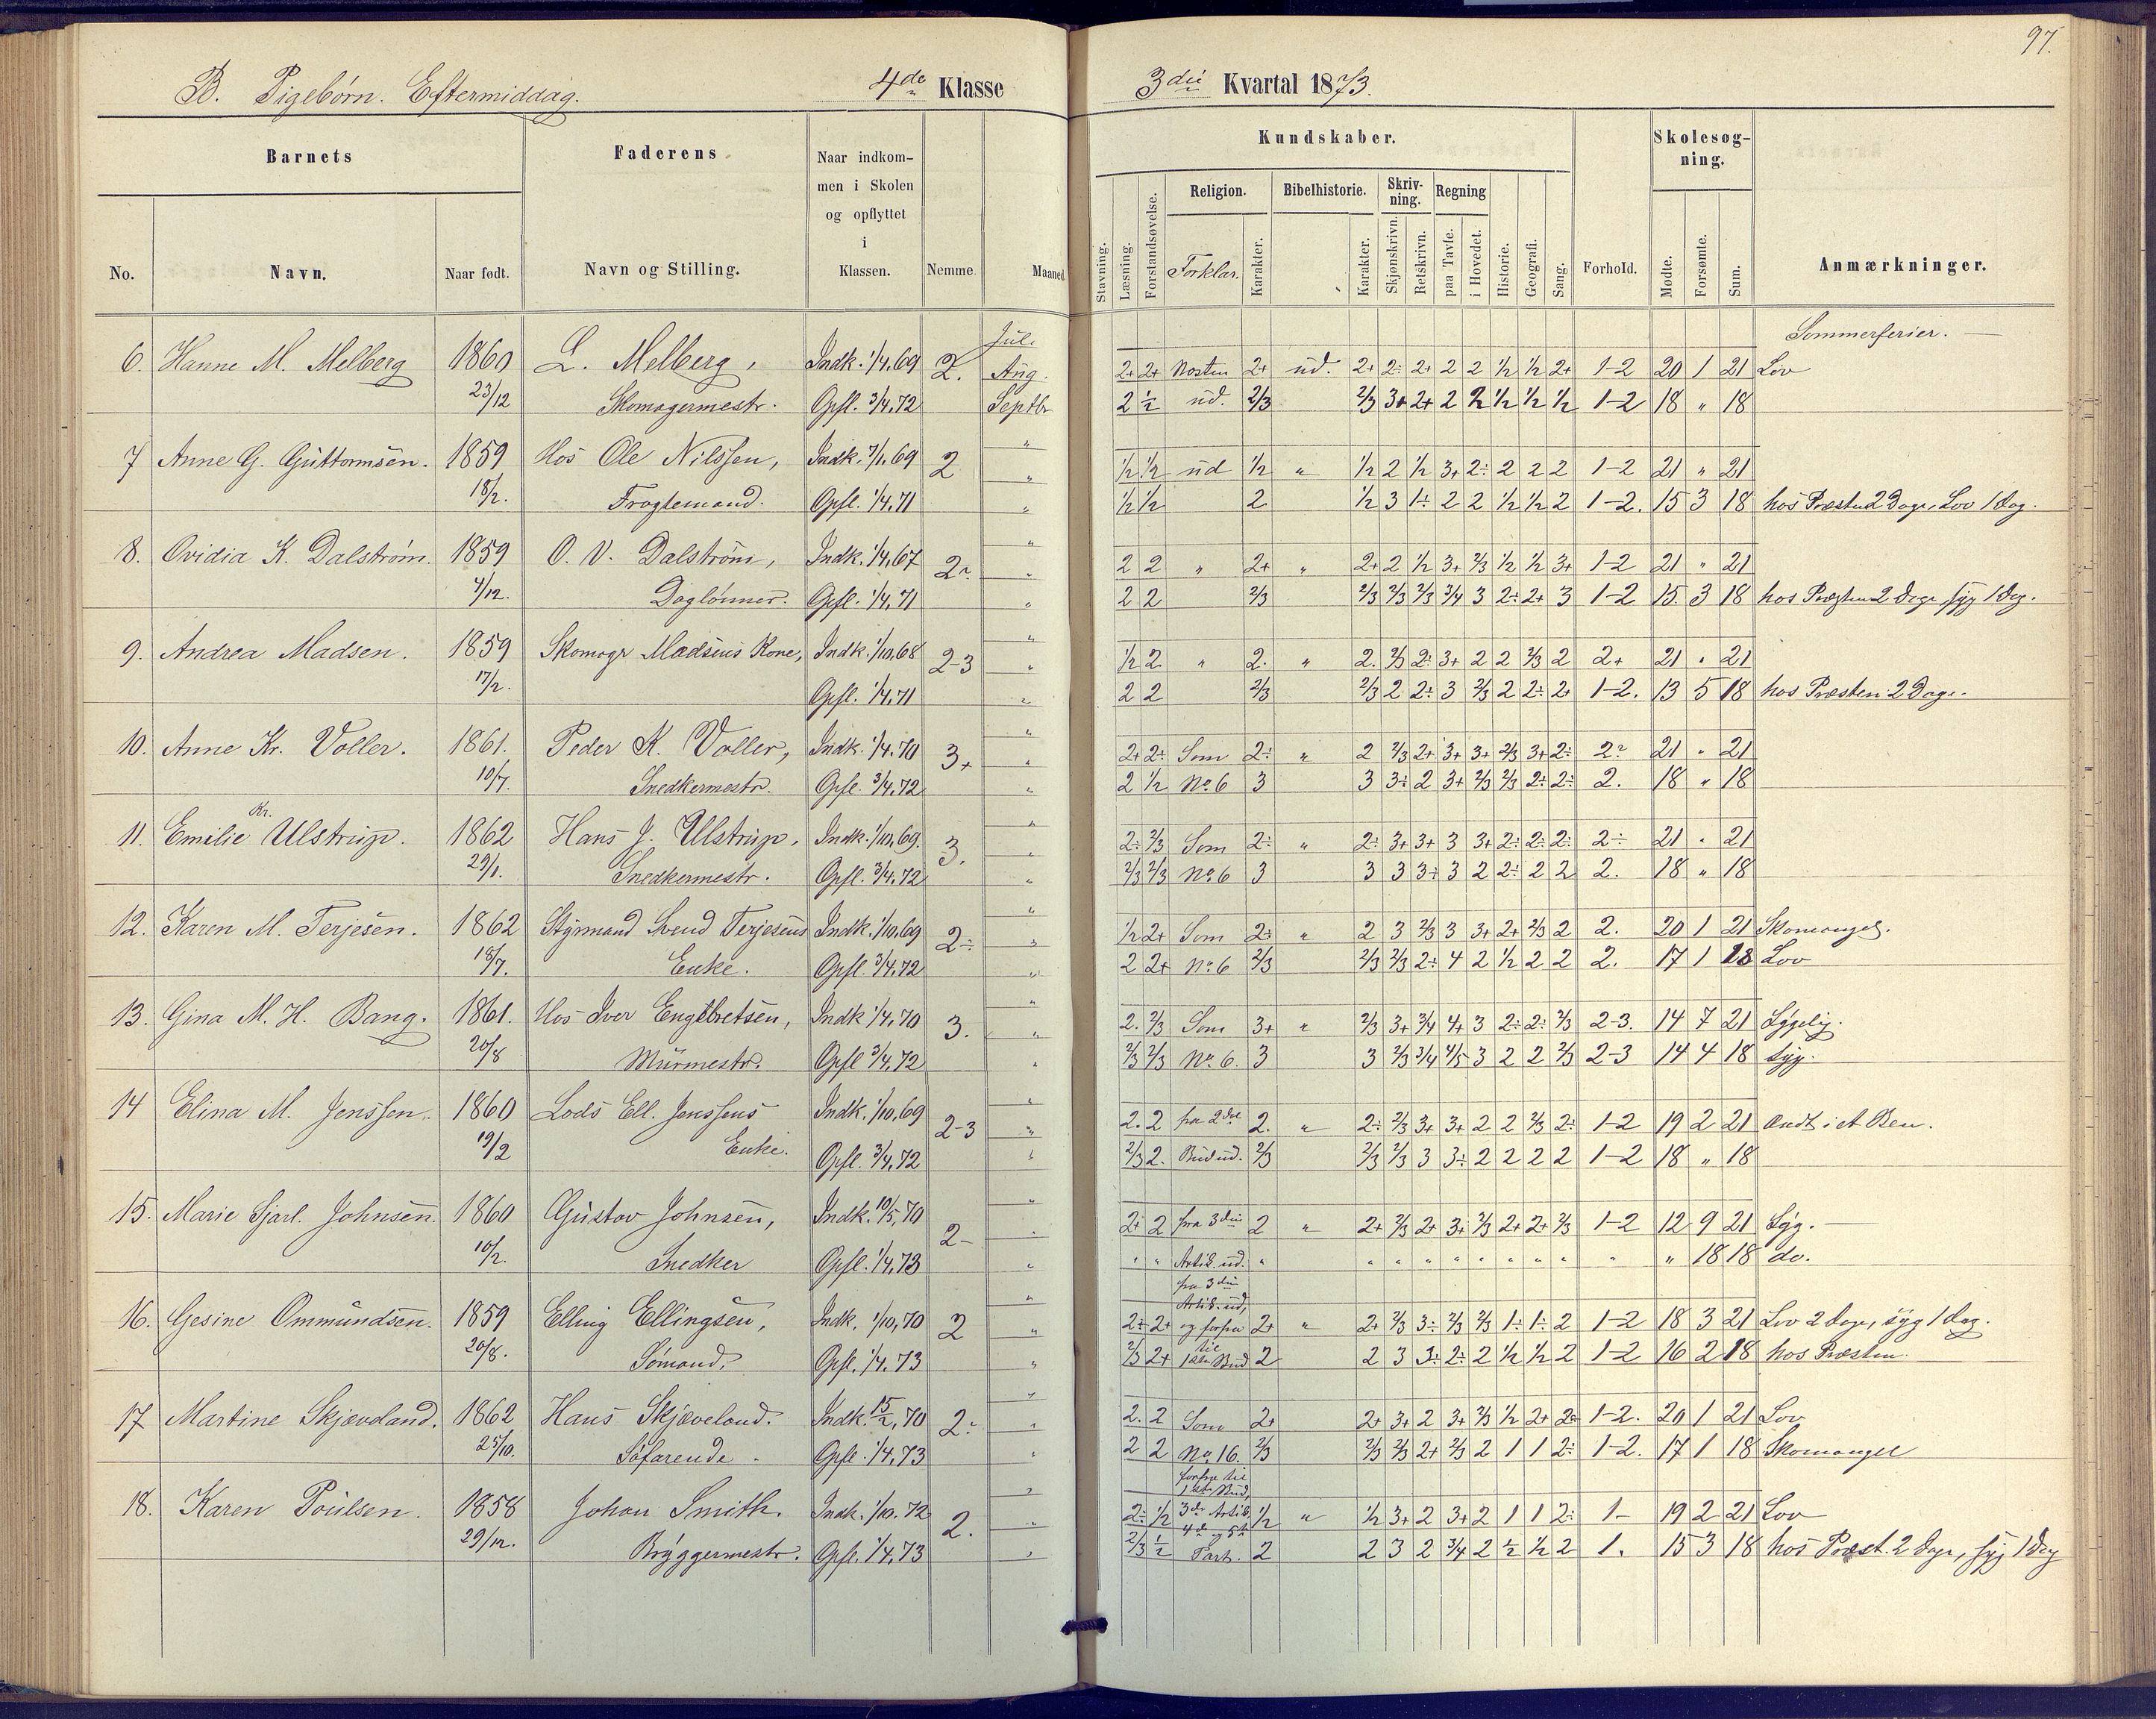 97.
B. Pigebörn. Eftermiddag. 4de Klasse 3die Kvartal 1873.
Barnets Faderens Naar indkommen i Skolen og opflyttet i Klassen. Nemme. Maaned Kundskaber. Forhold. Skolesøgning. Anmærkninger.
No. Navn. Naar født. Navn og Stilling. Stavning. Læsning. Forstandsøvelse. Religion. Forklar. Karakter. Bibelhistorie. Karakter. Skrivning. Skjønskrivn. Retskrivn. Regning paa Tavle. i Hovedet. Historie. Geografi. Sang. Mødte. Forsømte. Sum.
Juli Sommerferier.
6. Hanne M. Melberg 1860 L. Melberg, Indk. 1/4,69 2. Aug. 2+ 2+ Næsten 2+ ud. 2+ 2÷ 2+ 2 2 1/2 1/2 2+ 1-2 20 1 21 Lov
23/12 Skomagermestr. Opfl. 3/4,72 Septbr 2 1/2 ud. 2/3 2/3 3+ 2+ 2 2 1/2 1/2 1/2 1-2 18 " 18
7 Anne G. Guttormsen. 1859 Hos Ole Nilssen, Indk. 7/1,69 2 " 1/2 1/2 ud 1/2 " 1/2 2 1/2 3+ 2÷ 2 2 2 1-2 21 " 21
18/2. Fragtemand. Opfl. 1/4,71 " 1/2 1/2 2 1/2 3 1÷ 2 2 1/2 1/2 2 1-2. 15 3 18 hos Præsten 2 Dage, Lov 1 Dag.
8. Ovidia K. Dalström. 1859 O. V. Dalström, Indk. 1/4,67 2÷ " 2 2 " 2+ " 2+ 2 1/2 3+ 2/3 1/2 1/2 3+ 1-2 21 " 21
4/12. Daglönner. Opfl. 1/4,71 " 2 2 2/3 2/3 2/3 2/3 3/4 3 2÷ 2+ 3 1-2 15 3 18 hos Præsten 2 Dage, syg 1 Dag.
9. Andrea Madsen. 1859 Skomagr Madsens Kone, Indk. 1/10,68 2-3 " 1/2 2 " 2. " 2. 2/3 2÷ 3+ 2 2 2/3 2 2+ 21 " 21
17/2. Opfl. 1/4,71 " 2 2 2/3 2/3 2 2÷ 3 2/3 2 2÷ 2+ 1-2. 13 5 18 hos Præsten 2 Dage.
10. Anne Kr. Voller. 1861. Peder K. Voller, Indk. 1/4,70 3+ " 2+ 2÷ Som 2÷ " 2 2/3 2+ 3+ 3+ 2/3 3+ 2÷ 2÷ 21 " 21
10/7. Snedkermestr. Opfl. 3/4,72 " 2 1/2 No 6 3 3 3÷ 2 3+ 2/3 2/3 2÷ 2÷ 2. 18 " 18
11. Emilie Kr. Ulstrup. 1862 Hans J. Ulstrup, Indk. 1/10,69. 3. " 2÷ 2/3 Som 2÷ " 2÷ 3+ 3+ 3 3+ 2÷ 2÷ 2÷ 2÷ 21 " 21
29/1. Snedkermestr. Opfl. 3/4,72 " 2/3 2/3 No 6 3 3 3 3÷ 3 2 2÷ 2 2 2. 18 " 18
12. Karen M. Terjesen. 1862 Styrmand Svend Terjesens Indk. 1/10,69 2÷ " 1/2 2+ Som 2÷ " 2 3 2/3 3 3+ 2+ 2/3 2 2. 20 1 21 Skomangel.
18/7. Enke. Opfl. 3/4,72 " 2 2+ No 6 2/3 2/3 2/3 2÷ 4 2 1/2 2 2 2. 17 1 18 Lov
13. Gina M. H. Bang. 1861. Hos Iver Engelbretsen, Indk 1/4,70 3. " 2. 2/3 Som 3+ " 2/3 3+ 3/4 4+ 3 2÷ 2÷ 2/3 2-3. 14 7 21 Sygelig.
20/8 Murmestr. Opfl 3/4,72 " 2/3 2/3 No 6. 3 3 2/3 3/4 4/5 3 2 2 2/3 2-3 14 4 18 syg.
14 Elina M. Jenssen. 1860 Lods Ell. Jenssens Indk. 1/10,69 2-3 " 2. 2 fra 2det 2. " 2÷ 2/3 3+ 3+ 2 2 2/3 2÷ 1-2 19 2 21 Ondt i et Ben.
19/2 Enke. Opfl. 3/4,72 " 2/3 2. Bud ud. 2/3 2/3 2/3 3 3÷ 2 2 2 2 1-2 18 " 18
15. Marie Sjarl. Johnsen. 1860 Gustav Johnsen, Indk. 10/5,70 2- " 2÷ 2 fra 3die 2 " 2+ 2/3 2+ 3+ 2/3 2+ 2+ 2/3 1-2 12 9 21 Syg.
10/2. Snedker Opfl. 1/4,73 " " " Artik. ud. " " " " " " " " " " " 18 18 do.
16. Gesine Ommundsen. 1859 Elling Ellingsen, Indk. 1/10,70 2 " 2÷ 2+ fra 3die Artik. ud, og forfra 2+ " 2+ 2/3 3÷ 2/3 2/3 1÷ 1÷ 2 1-2 18 3 21 Lov 2 Dage, syg 1 Dag.
20/8. Sömand. Opfl. 1/4,73 " 2/3 2+ til 1ste Bud 2 2 3 3÷ 2÷ 2 1/2 1/2 2 1-2 16 2 18 hos Præsten.
17 Martine Skjæveland. 1862 Hans Skjæveland. Indk. 15/2,70 2÷ " 2. 2 Som 2+ 2+ 3+ 2 3+ 2/3 1/2 2+ 2÷ 1-2. 20 1 21 Lov
25/10. Söfarende. Opfl. 1/4,73 " 2 2 No 16. 2/3 2/3 2/3 2+ 2/3 2 1 1 2÷ 1-2. 17 1 18 Skomangel
18. Karen Poulsen. 1858 Johan Smith. Indk. 1/10,72 2. " 2÷ 1/2 forfra til 1ste Bud, 3de Artik. 1/2 " 1/2 3+ 2 3+ 2 1 1 2÷ 1- 19 2 21 Lov
29/12. Bryggermestr. Opfl. 1/4,73 " 2/3 1/2 4de og 5te Part. 2 2 3 2 3/4 2 1/2 1/2 2 1. 15 3 18 hos Præst. 2 Dage, syg 1 Dag